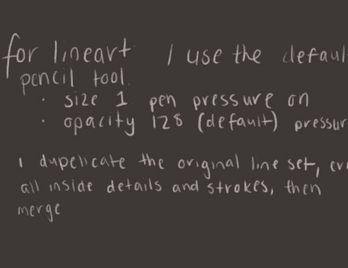 for lineart I use the defaul
pencil tool.
· size 1 pen pressure on
· opacity 128 (default) pressur
I dupelicate the original line set,
all inside details and strokes, then
merge